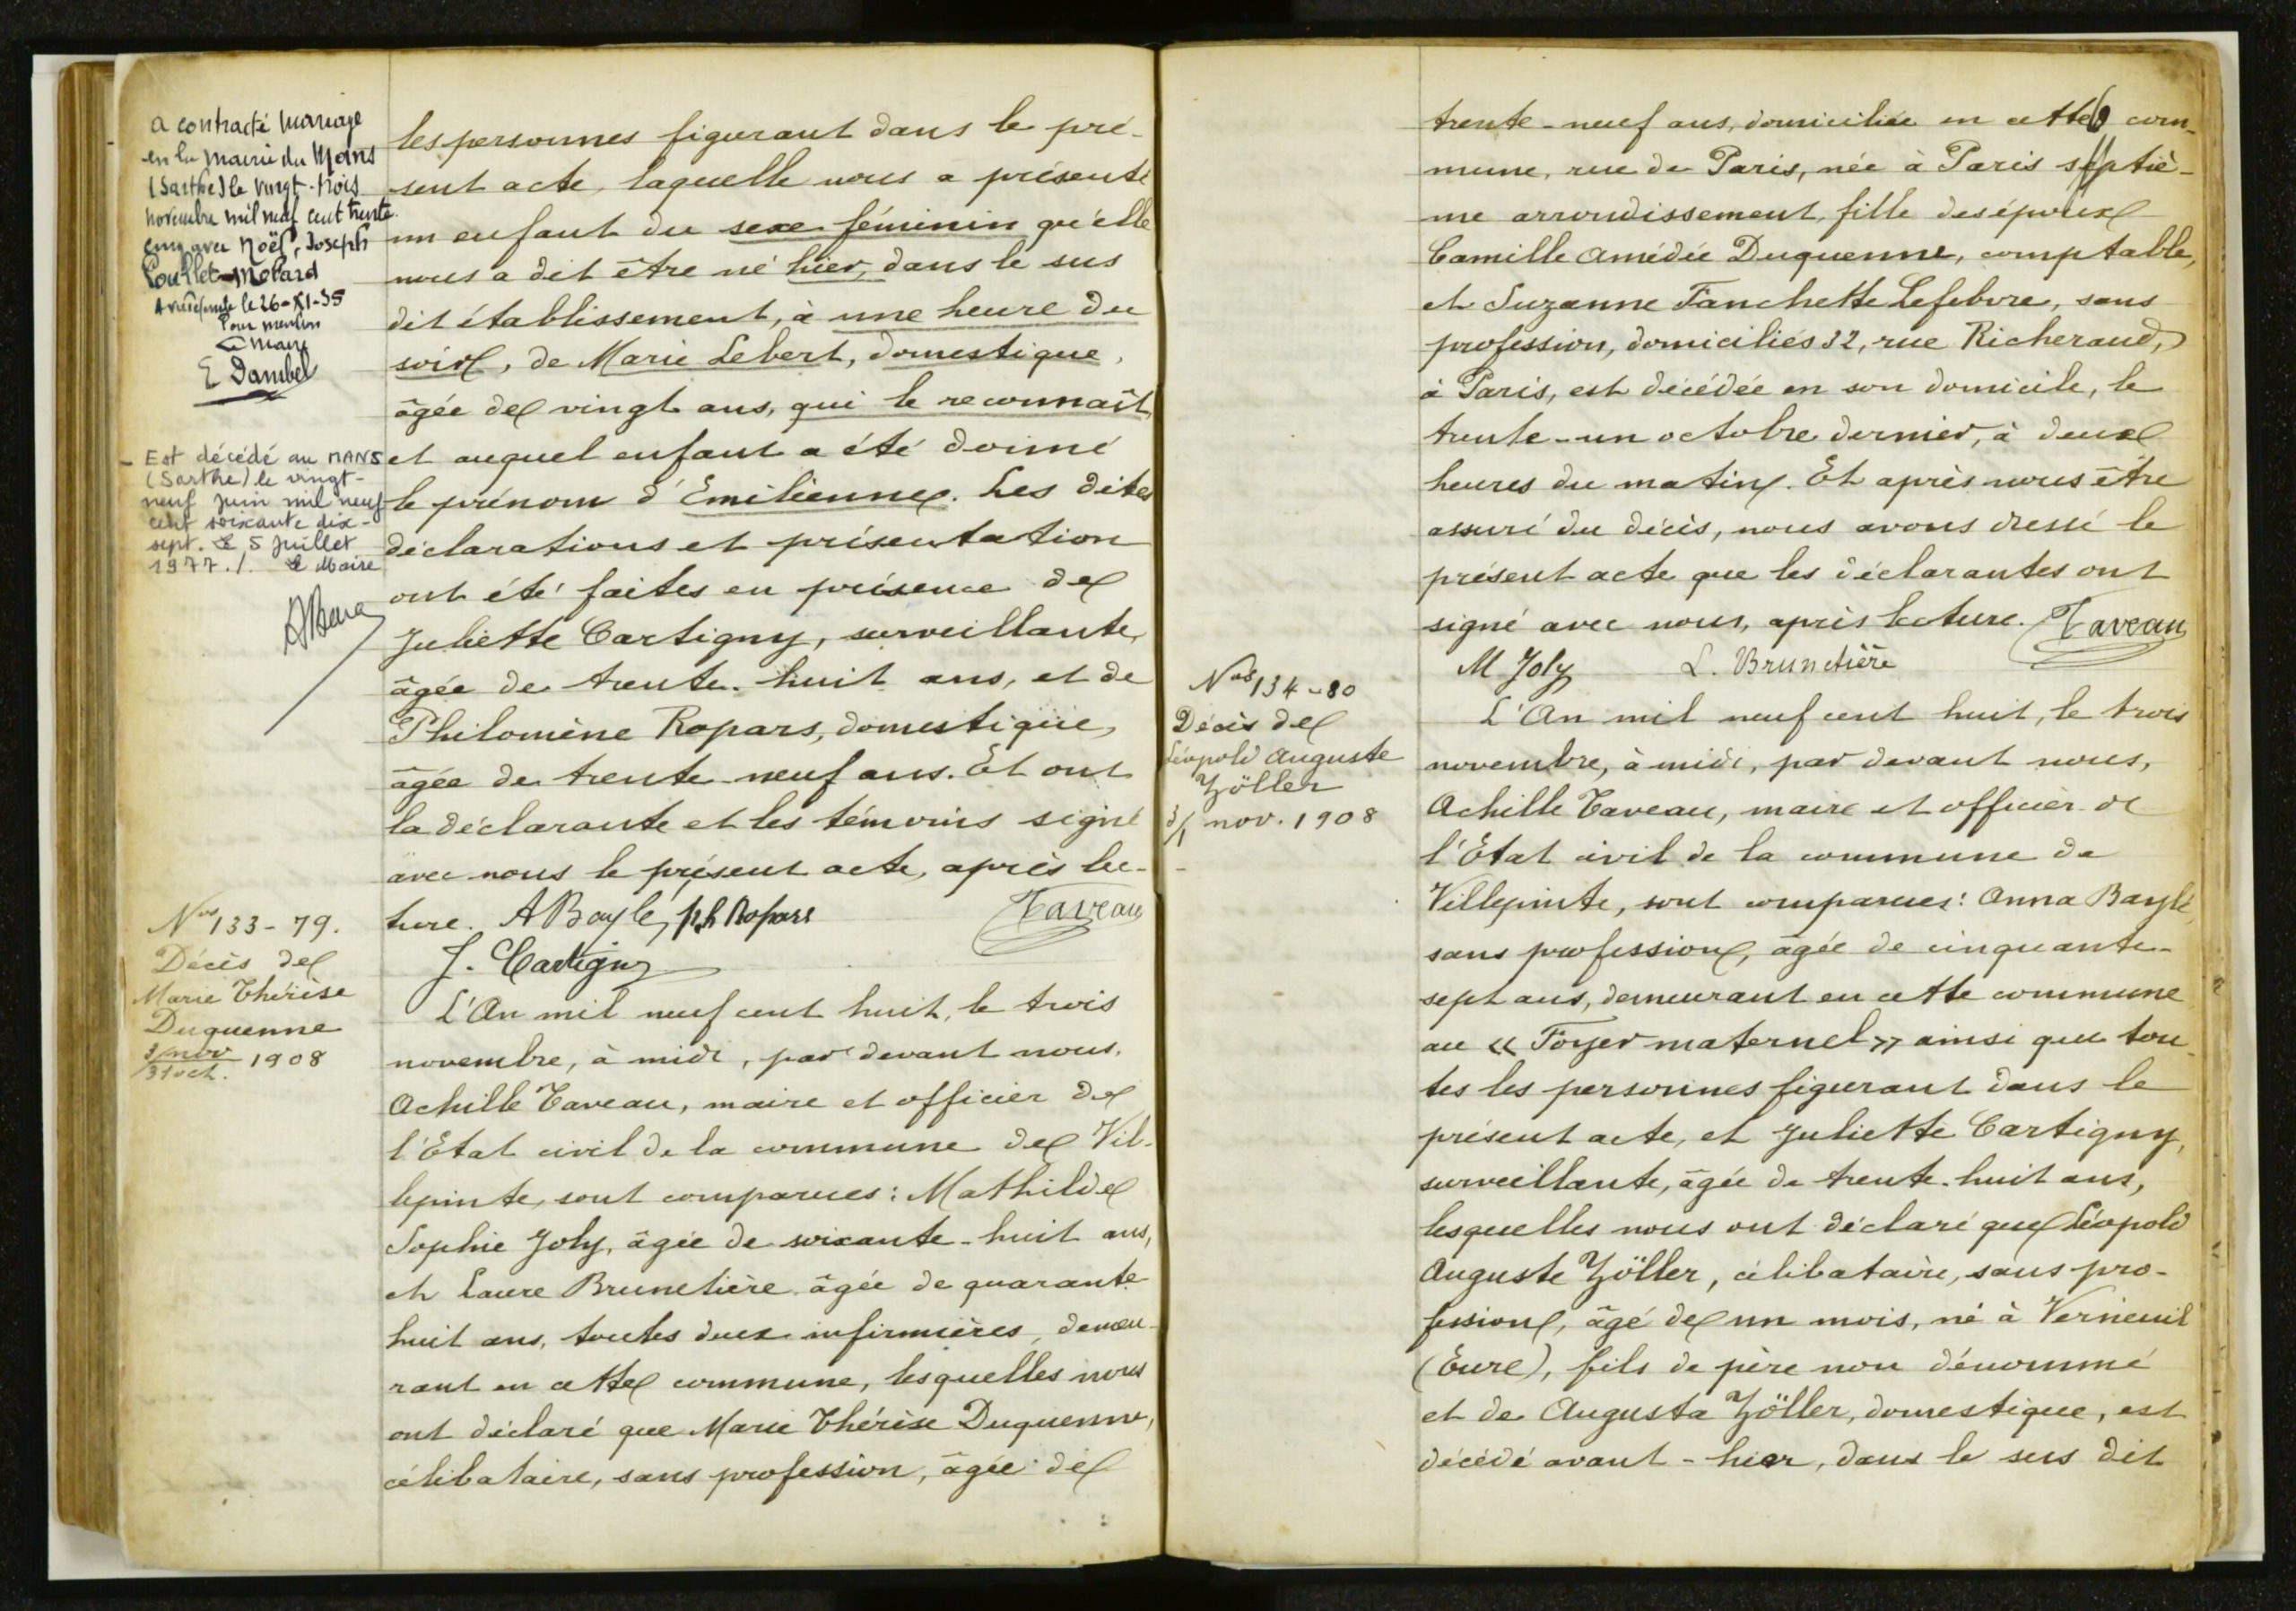 a contracté mariage
en la mairie du Mans
(Sarthe) le vingt-trois
novembre mil neuf cent trente
cinq avec Noël, Joseph
Poullet-Molard
le 26-XI-35
Pour mention
Le Maire
E Dambel
Est décédé au MANS
(Sarthe) le vingt-
neuf juin mil neuf
cent soixante dix-
sept. Le 5 Juillet
1977./. Le Maire
les personnes figurant dans le pré-
sent acte, laquelle nous a présenté
un enfant du sexe féminin qu'elle
nous a dit être né hier, dans le sus
dit établissement, à une heure du
soir, de Marie Lebert, domestique,
âgée de vingt ans, qui le reconnaît
et auquel enfant a été donné
le prénom d'Emilienne. Les dites
déclarations et présentation
ont été faites en présence de
Juliette Cartigny, surveillante,
âgée de trente-huit ans, et de
Philomène Ropars, domestique,
âgée de trente-neuf ans. Et ont
la déclarante et les témoins signé
avec nous le présent acte, après lec-
ture. A Baylé, ph Ropars Taveau
J. Cartigny
Nos 133-79.
Décès de
Marie Thérèse
Duquenne
3 nov
31 oct. 1908
L'An mil neuf cent huit, le trois
novembre, à midi, par devant nous,
Achille Taveau, maire et officier de
l'Etat civil de la commune de Vil-
lepinte, sont comparues: Mathilde
Sophie Joly, âgée de soixante-huit ans,
et Laure Brunetière âgée de quarante
huit ans, toutes deux infirmières, demeu-
rant en cette commune, lesquelles nous
ont déclaré que Marie Thérèse Duquenne,
célibataire, sans profession, âgée de
trente-neuf ans, domiciliée en cette com-
mune, rue de Paris, née à Paris septiè-
me arrondissement, fille des époux
Camille Amédée Duquenne, comptable,
et Suzanne Fanchette Lefebvre, sans
profession, domiciliés 32, rue Richerand,
à Paris, est décédée en son domicile, le
trente-un octobre dernier, à deux
heures du matin. Et après nous être
assuré du décès, nous avons dressé le
présent acte que les déclarantes ont
signé avec nous, après lecture. Taveau
M Joly L. Brunetière
Nos 134-80
Décès de
Léopold Auguste
Zöller
3/1 nov. 1908
L'An mil neuf cent huit, le trois
novembre, à midi, par devant nous,
Achille Taveau, maire et officier de
l'Etat civil de la commune de
Villepinte, sont comparues: Anna Baylé,
sans profession, âgée de cinquante-
sept ans, demeurant en cette commune
au « Foyer maternel » ainsi que tou-
tes les personnes figurant dans le
présent acte, et Juliette Cartigny,
surveillante, âgée de trente-huit ans,
lesquelles nous ont déclaré que Léopold
Auguste Zöller, célibataire, sans pro-
fession, âgé de un mois, né à Verneuil
(Eure), fils de père non dénommé
et de Augusta Zöller, domestique, est
décédé avant-hier, dans le sus dit